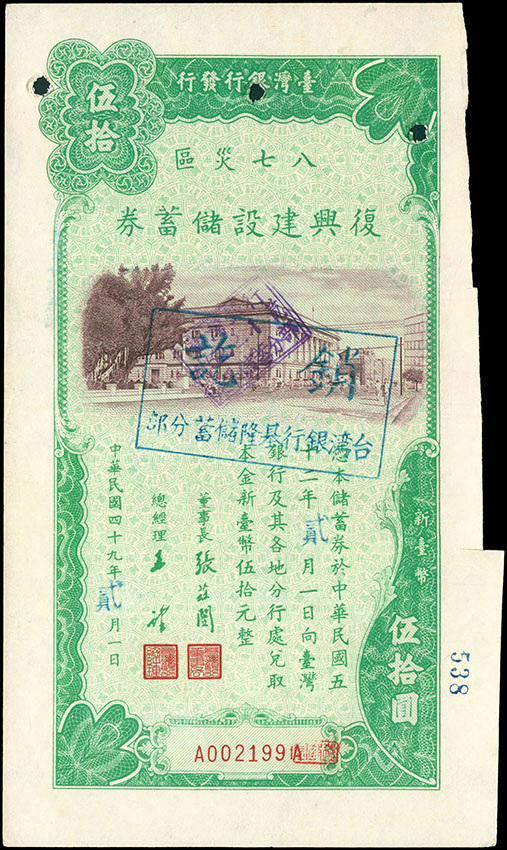 臺灣銀行發行
伍拾
八七災區
復興建設儲蓄券
註銷
台湾銀行基隆儲蓄分部
憑本儲蓄券於中華民國五
十二年貳月一日向臺灣
銀行及其各地分行處兌取
本金新臺幣伍拾元整
董事長
總經理
中華民國四十九年貳月一日
新臺幣
伍拾圓
538
A002199A